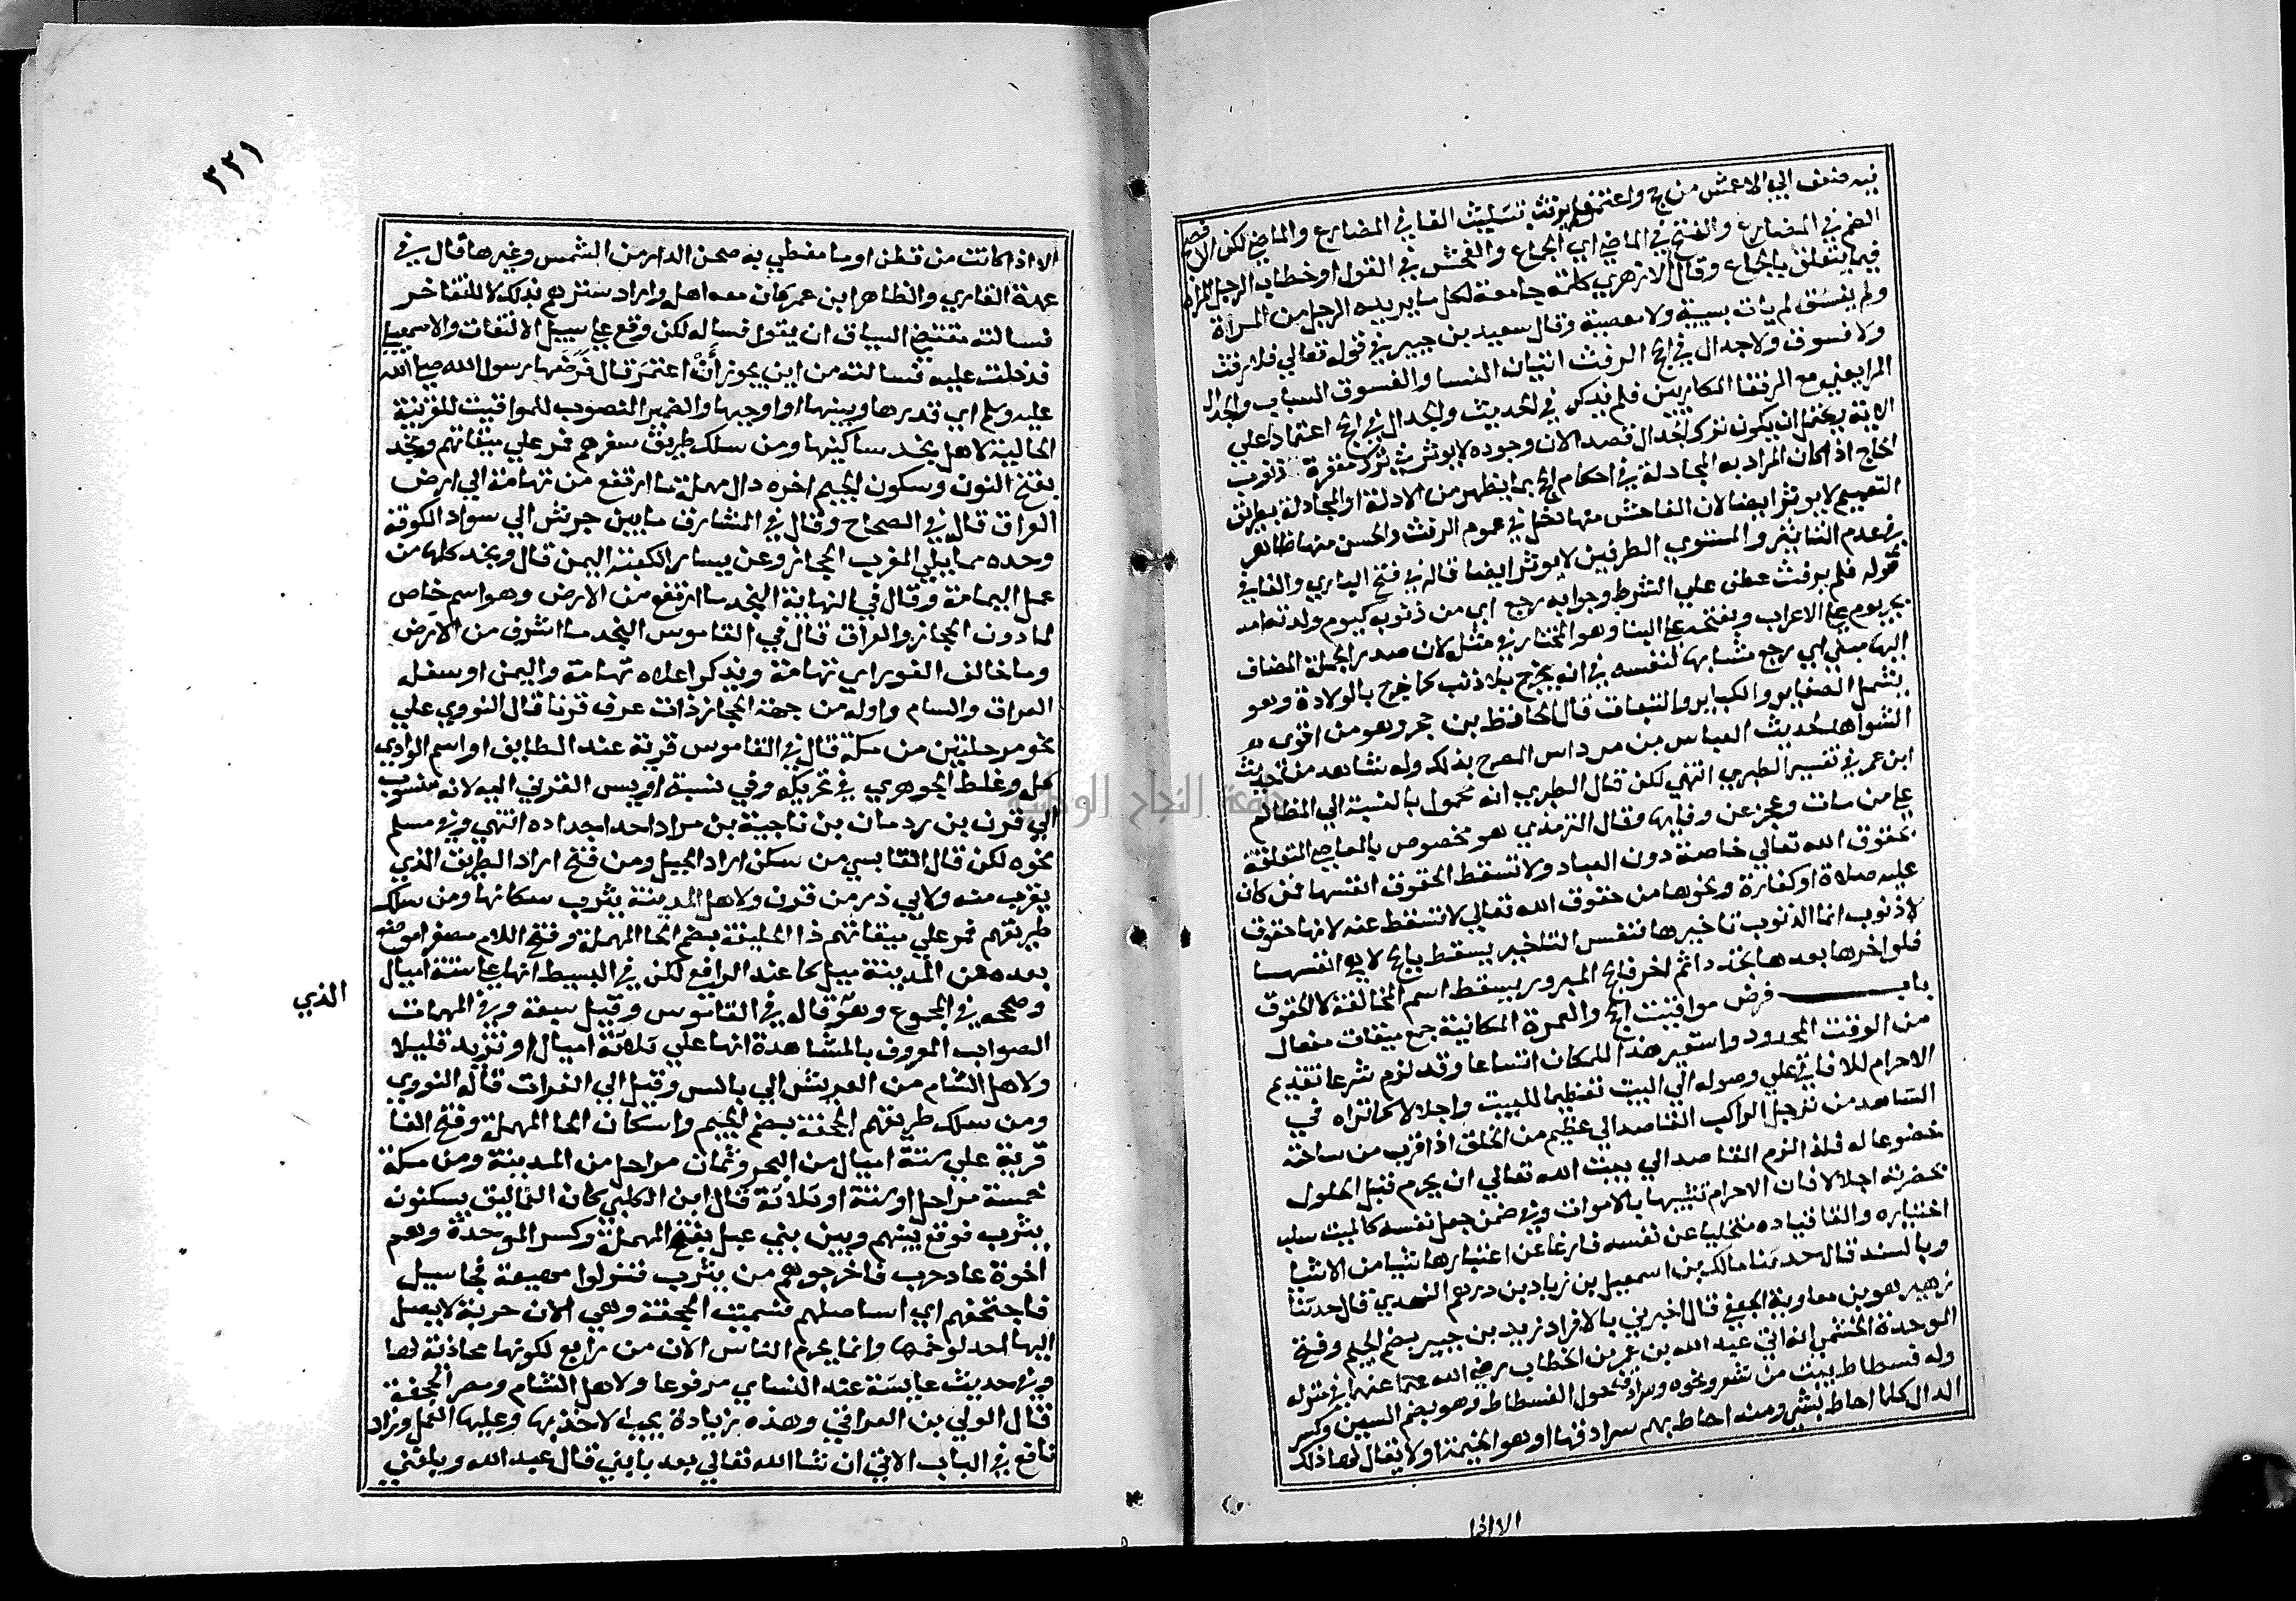 فيه ضعف الي الاعمش من حج واعتمر فلم يرفث بتثليث الفا في المضارع والماضي لكن الافصح
الضم في المضارع والفتح في الماضي اي الجماع والفحش في القول او خطاب الرجل المراة
فيما يتعلق بالجماع وقال الازهري كلمة جامعة لكل ما يريده الرجل من المراة
ولم يفسق لم يات بسيية ولا معصية وقال سعيد بن جبير في قوله تعالي فلا رفث
ولا فسوق ولا جدال في الحج الرفث اتيان النسا والفسوق السباب والجدال
المرا يعني مع الرفقا والمكاريين فلم يذكر في الحديث والجدال في الحج اعتمادا علي
الاية ويحتمل ان يكون ترك الجدال قصدا لان وجوده لا يوثر في ترك مغفرة ذنوب
الحاج اذا كان المراد به المجادلة في احكام الحج بما يظهر من الادلة او المجادلة بطريق
التعميم لا يوثر ايضا لان الفاحش منها دخل في عموم الرفث والحسن منها ظاهر
في عدم التاثير والمستوي الطرفين لا يوثر ايضا قاله في فتح الباري والفا في
قوله فلم يرفث عطف علي الشرط وجوابه رجع اي من ذنوبه كيوم ولدته امه
بجر يوم علي الاعراب وبفتحه علي البنا وهو المختار في مثله لان صدر الجملة المضاف
اليها مبني اي رجع مشابها لنفسه في انه يخرج بلا ذنب كما خرج بالولادة وهو
يشمل الصغاير والكباير والتبعات قال الحافظ بن حجر وهو من اقوي
الشواهد لحديث العباس بن مرداس المصرح بذلك وله شاهد من حديث
ابن عمر في تفسير الطبري انتهي لكن قال الطبري انه محمول بالنسبة الي المظالم
علي من مات وعجز عن وفايها وقال الترمذي هو مخصوص بالمعاصي المتعلقة
بحقوق الله تعالي خاصة دون العباد ولا تسقط الحقوق انفسها فمن كان
عليه صلاة او كفارة ونحوها من حقوق الله تعالي لا تسقط عنه لانها حقوق
لا ذنوب انما الذنوب تاخيرها فنفس التاخير يسقط بالحج لا هي انفسها
فلو اخرها بعدها تجدد اثم اخر فالحج المبرور يسقط اسم المخالفة لا الحقوق
باب فرض مواقيت الحج والعمرة المكانية جمع ميقات مفعال
من الوقت المحدود واستعير هنا للمكان اتساعا وقد لزم شرعا تقديم
الاحرام للافاقي علي وصوله الي البيت تعظيما للبيت واجلالا كما تراه في
الشاهد من ترجل الراكب القاصد الي عظيم من الخلق اذا قرب من ساحته
خضوعا له فلذا لزم القاصد الي بيت الله تعالي ان يحرم قبل الحلول
بحضرته اجلالا فان الاحرام تشبيها بالاموات وفي ضمن جعل نفسه كالميت سلب
اختياره والقا قياده متخليا عن نفسه فارغا عن اعتبارها شيا من الاشيا
وبالسند قال حدثنا مالك بن اسمعيل بن زياد بن درهم النهدي قال حدثنا
زهير هو بن معاوية الجعفي قال اخبرني بالافراد زيد بن جبير بضم الجيم وفتح
الموحدة الجشمي انه اتي عبد الله بن عمر بن الخطاب رضي الله عنهما في منزله
وله فسطاط بيت من شعر ونحوه وسرادق حول الفسطاط وهو بضم السين وكسر
الدال كلما احاط بشي ومنه احاط بهم سرادقها او هو الخيمة او لا يقال لها ذلك
٣٢١
الا اذا كانت من قطن او ما مغطي به صحن الدار من الشمس وغيرها قال في
عمدة القاري والظاهر ابن عمر كان معه اهله واراد سترهم بذلك لا للتفاخر
فسالته مقتضي السياق ان يقول فساله لكن وقع علي سبيل الالتفات والاسمعيلي
فدخلت عليه فسالته من اين يجوز أن اعتمر قال فرضها رسول الله صلي الله
عليه وسلم اي قدرها وبينها او اوجبها والضمير المنصوب للمواقيت للقرينة
الحالية لاهل نجد ساكنيها ومن سلك طريق سفرهم فمر علي ميقاتهم ونجد
بفتح النون وسكون الجيم اخره دال مهملة ما ارتفع من تهامة الي ارض
العراق قال في الصحاح وقال في المشارق ما بين جرش الي سواد الكوفة
وحده مما يلي المغرب الحجاز وعن يسار الكعبة اليمن قال ونجد كلها من
عمل اليمامة وقال في النهاية النجد ما ارتفع من الارض وهو اسم خاص
لما دون الحجاز والعراق قال في القاموس النجد ما اشرف من الارض
وما خالف الغور اي تهامة ويذكر اعلاه تهامة واليمن اوسفله
العراق والشام واوله من جهة الحجاز ذات عرق قرنا قال النووي علي
نحو مرحلتين من مكة قال في القاموس قرية عند الطايف او اسم الوادي
كله وغلط الجوهري في تحريكه وفي نسبة اويس القرني اليه لانه منسوب
الي قرن بن ردمان بن ناجية بن مراد احد اجداده انتهي وفي مسلم
نحوه لكن قال القابسي من سكن اراد الجبل ومن فتح اراد الطريق الذي
يقرب منه ولابي ذر من قرن ولاهل المدينة يثرب سكانها ومن سلك
طريقهم فمر علي ميقاتهم ذا الحليفة بضم الحا المهملة وفتح اللام مصغرا موضع
بعده من المدينة ميل كما عند الرافعي لكن في البسيط انها علي ستة اميال
وصححه في المجموع وهو قاله في القاموس وقيل سبعة وفي المهمات
الذي
الصواب المعروف بالمشاهدة انها علي ثلاثة اميال او تزيد قليلا
ولاهل الشام من العريش الي بالس وقيل الي الفرات قاله النووي
ومن سلك طريقهم الجحفة بضم الجيم واسكان الحا المهملة وفتح الفا
قرية علي ستة اميال من البحر وثمان مراحل من المدينة ومن مكة
خمسة مراحل او ستة او ثلاثة قال ابن الكلبي كان العماليق يسكنون
يثرب فوقع بينهم وبين بني عبيل بفتح المهملة وكسر الموحدة وهم
اخوة عاد حرب فاخرجوهم من يثرب فنزلوا مهيعة فجا سيل
فاجتحفهم اي استاصلهم فسميت الجحفة وهي الان خربة لا يصل
اليها احد لوخمها وانما يحرم الناس الان من رابع لكونها محاذية لها
وفي حديث عايشة عند النساي مرفوعا ولاهل الشام ومصر الجحفة
قال الولي بن العراقي وهذه زيادة يجب الاخذ بها وعليها العمل وزاد
نافع في الباب الاتي ان شا الله تعالي بعد بابين قال عبد الله وبلغني
جامعة النجاح الوطنية